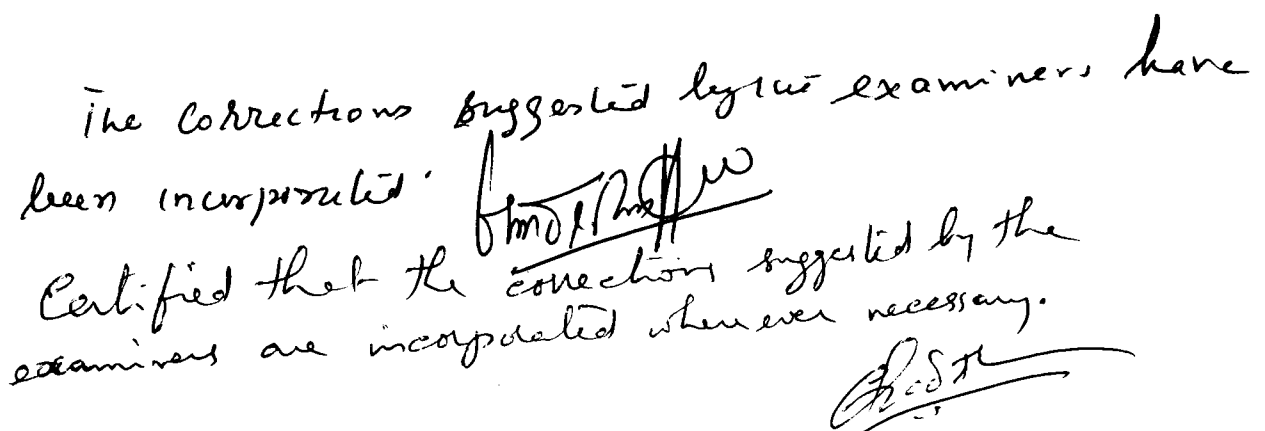 The corrections suggested by the examiners have
been incorporated.
Certified that the corrections suggested by the
examiners are incorporated wherever necessary.